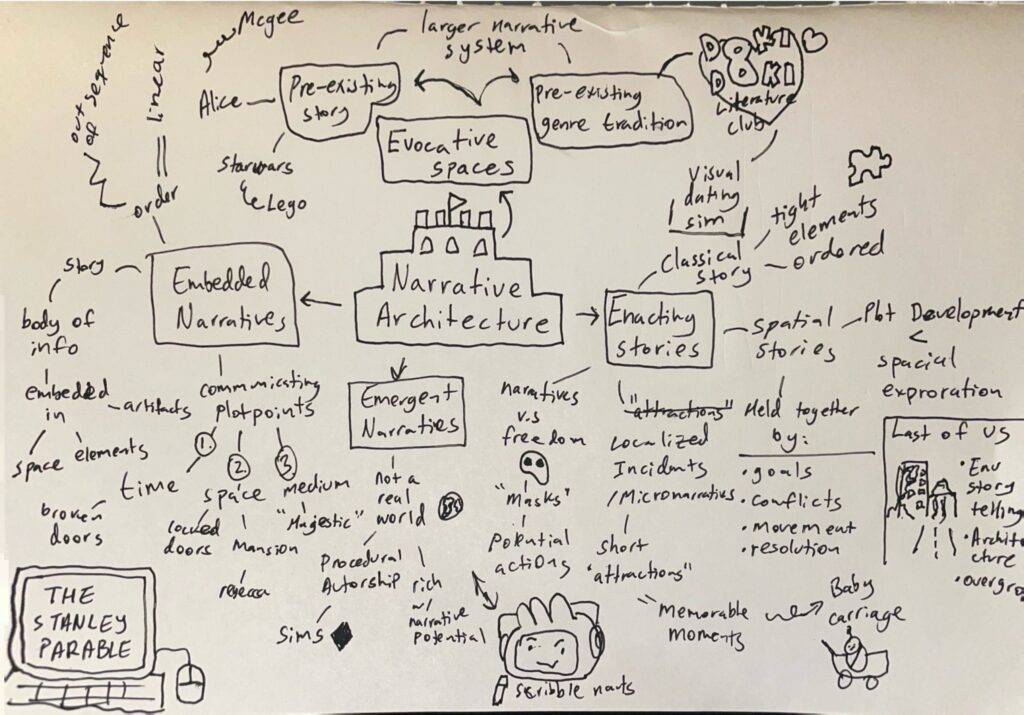 out of sequence
linear
order
Mcgee
Alice
Pre-existing
story
Starwars
Lego
larger narrative
system
Pre-existing
genre tradition
DOKI
DOKI
Literature
club
Visual
dating
sim
Evocative
spaces
Narrative
Architecture
Embedded
Narratives
story
body of
info
embedded
in
artifacts
space
elements
communicating
plotpoints
1
time
broken
doors
2
space
locked
doors
Mansion
3
medium
"Majestic"
Emergent
Narraties
Not a
real
world
Procedural
Autorship
Sims
rich
narrative
potential
Enacting
stories
Classical
story
tight
elements
ordored
spatial
stories
Plot Development
<
spacial
exproration
narratives
v.s
freedom
"Masks"
potential
actions
scribble nauts
"attractions"
Localized
Incidnts
/Micronarratives
short
"attractions"
"Memorable
moments
Baby
carriage
Held together
by:
• goals
• conflicts
• movement
• resolution
Last of us
• Env
story
telling
• Archite
cture
• overgro
THE
STANLEY
PARABLE